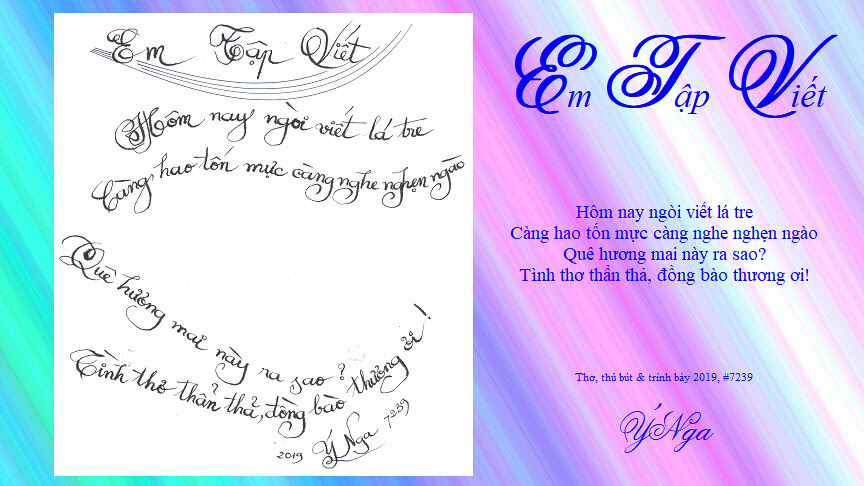 Em Tập Viết
Hôm nay ngòi viết lá tre
Càng hao tốn mực càng nghe nghẹn ngào
Quê hương mai này ra sao?
Tình thơ thẩn thả, đồng bào thương ơi!
Ý Nga
2019 7239
Em Tập Viết
Hôm nay ngòi viết lá tre
Càng hao tốn mực càng nghe nghẹn ngào
Quê hương mai này ra sao?
Tình thơ thẩn thả, đồng bào thương ơi!
Thơ, thủ bút & trình bày 2019, #7239
Ý Nga